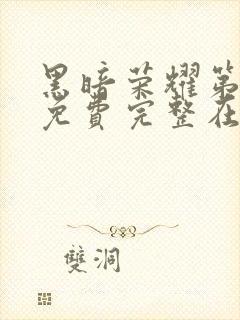 黑暗荣耀第
免費完整在
雙洞